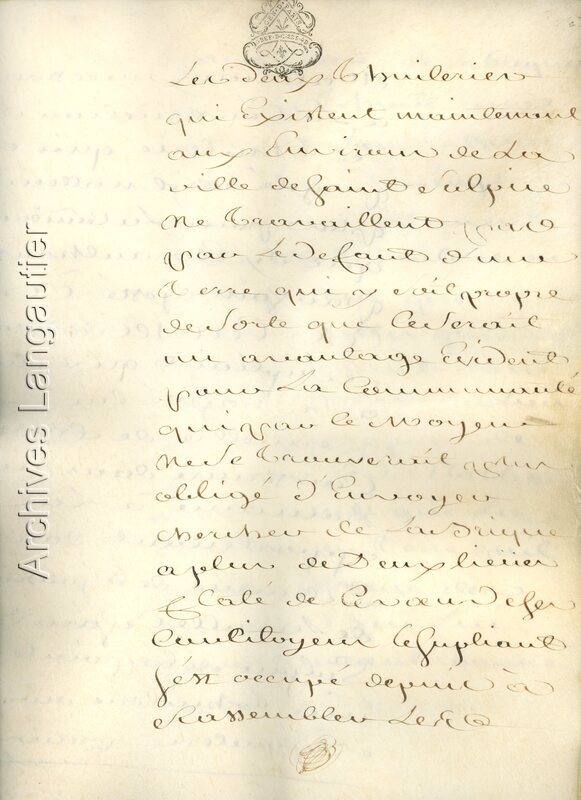 Les deux Thuileries
qui Existent maintenant
aux Environs de La
ville de Saint Sulpice
Ne Travaillent pas
par Le defaut d'une
Terre qui y soit propre
de Sorte que Ce Serait
un avantage Evident
pour La Communauté
qui par ce Moyen
Ne Se Trouverait plus
obligé d'Envoyer
chercher de La Brique
a plus de Deux lieues
Et Zelé de
Concitoyens le Supliant
s'est occupé depuis à
Rassembler Les
Archives Langautier